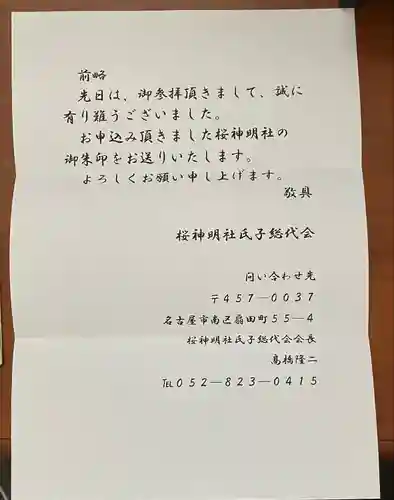 前略
先日は、御参拝頂きまして、誠に
有り難うございました。
お申込み頂きました桜神明社の
御朱印をお送りいたします。
よろしくお願い申し上げます。
敬具
桜神明社氏子総代会
問い合わせ先
〒457―0037
名古屋市南区扇田町55―4
桜神明社氏子総代会会長
高橋隆二
℡052―823―0415